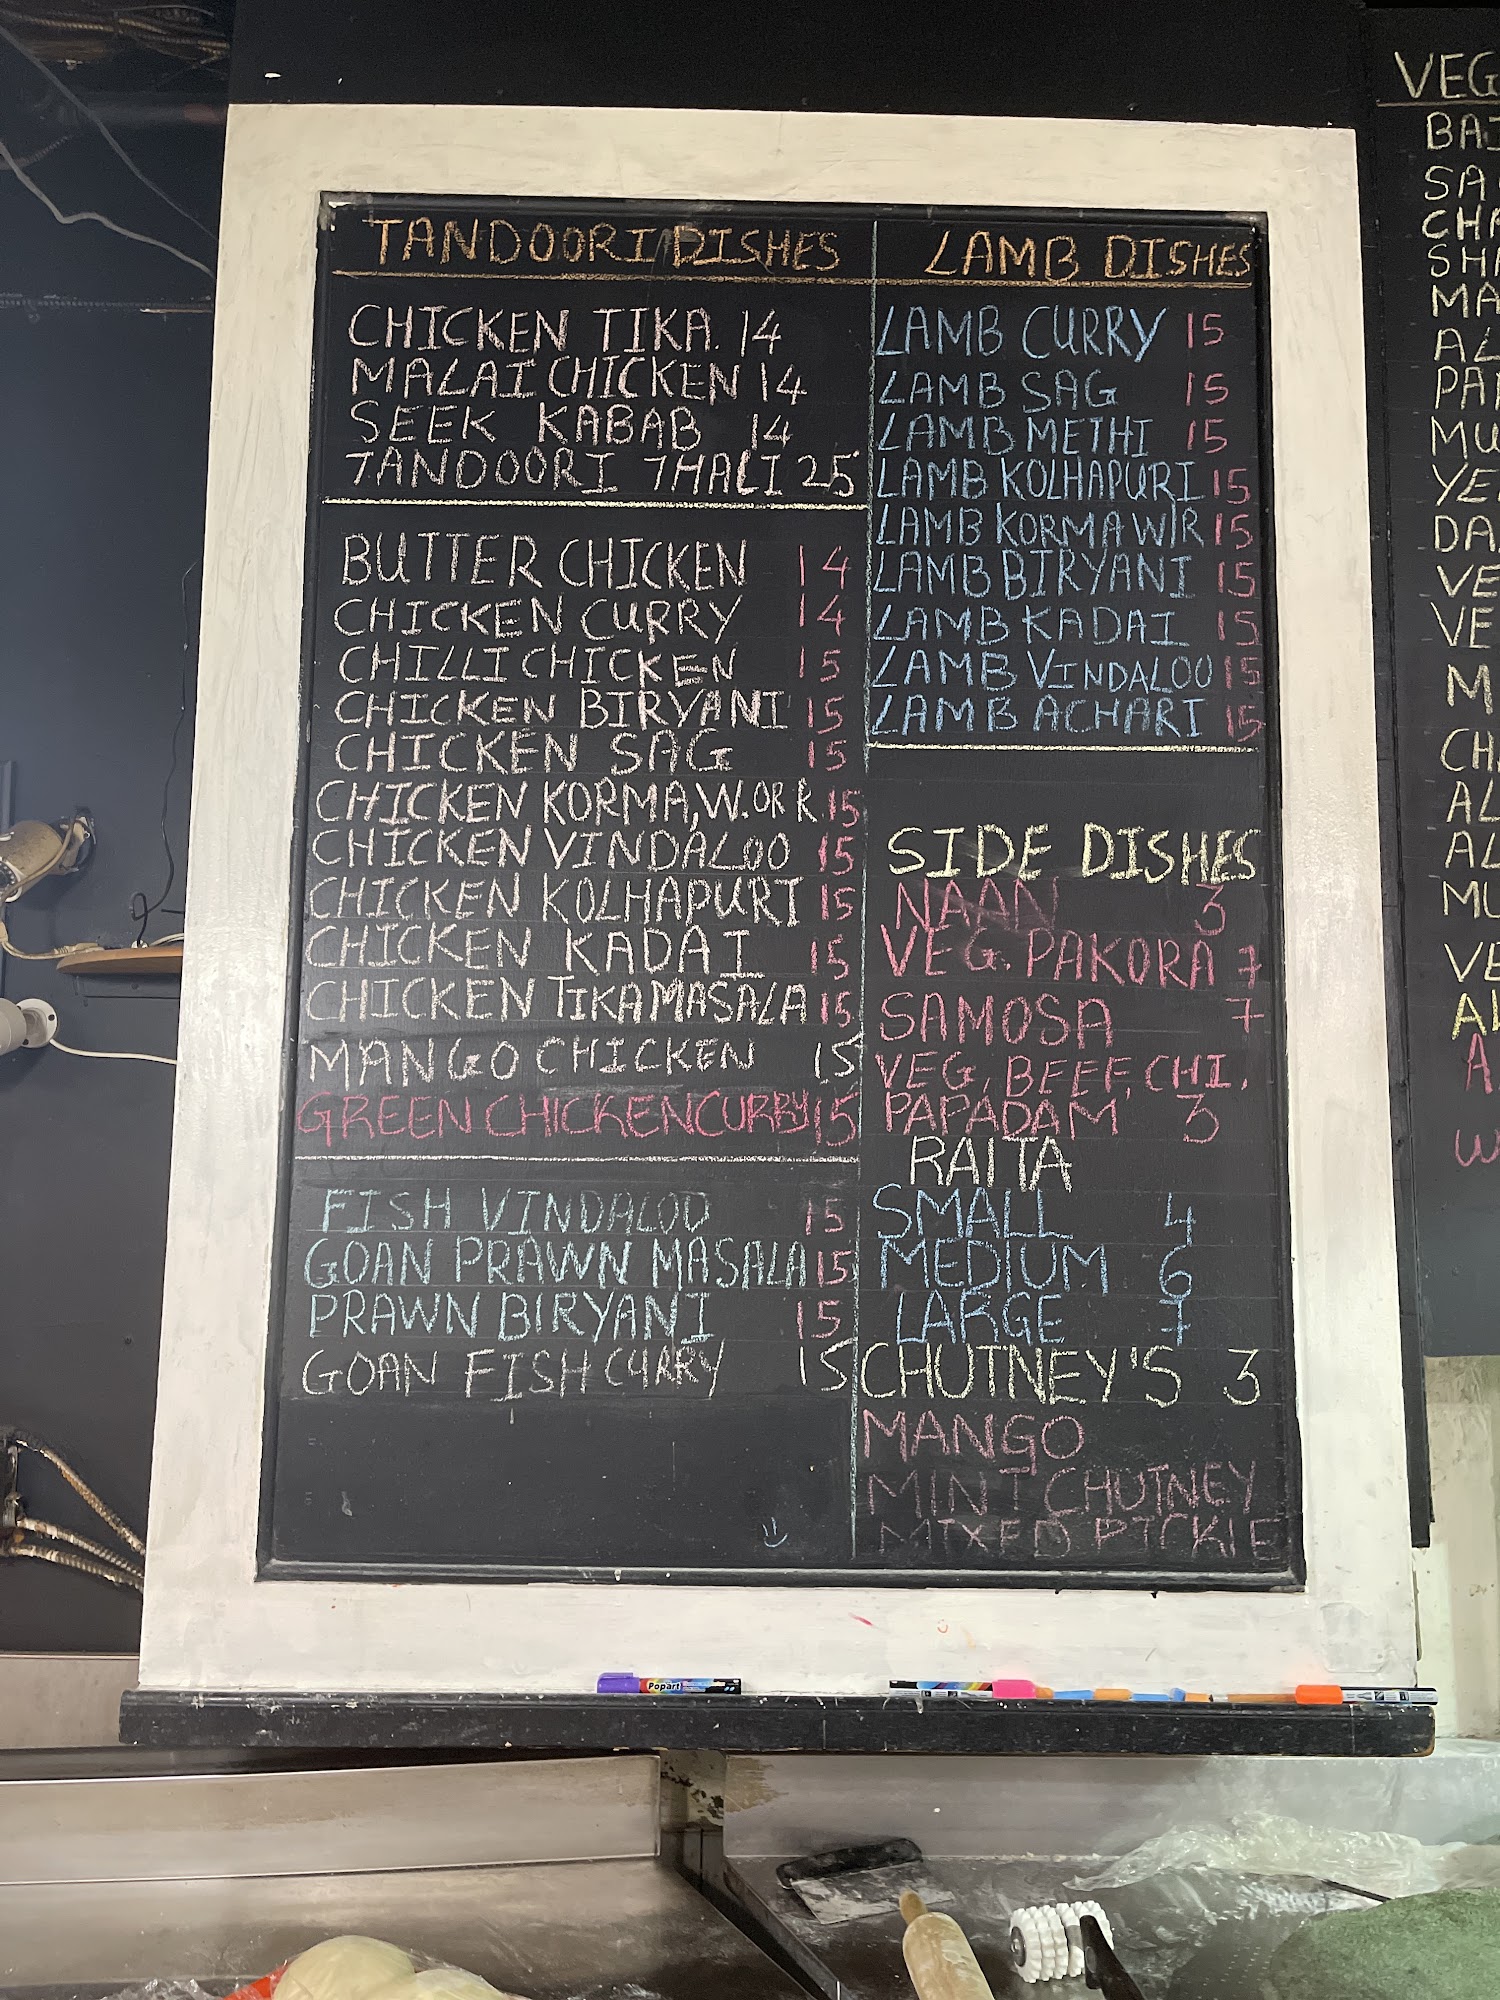 TANDOORI DISHES
CHICKEN TIKA. 14
MALAI CHICKEN 14
SEEK KABAB 14
TANDOORI THALI 25
BUTTER CHICKEN 14
CHICKEN CURRY 14
CHILLI CHICKEN 15
CHICKEN BIRYANI 15
CHICKEN SAG 15
CHICKEN KORMA, W. OR R 15
CHICKEN VINDALOO 15
CHICKEN KOLHAPURI 15
CHICKEN KADAI 15
CHICKEN TIKA MASALA 15
MANGO CHICKEN 15
GREEN CHICKEN CURRY 15
FISH VINDALOO 15
GOAN PRAWN MASALA 15
PRAWN BIRYANI 15
GOAN FISH CURRY 15
LAMB DISHES
LAMB CURRY 15
LAMB SAG 15
LAMB METHI 15
LAMB KOLHAPURI 15
LAMB KORMA W/R 15
LAMB BIRYANI 15
LAMB KADAI 15
LAMB VINDALOU 15
LAMB ACHARI 15
SIDE DISHES
NAAN 3
VEG. PAKORA 7
SAMOSA 7
VEG, BEEF, CHI.
PAPADAM 3
RAITA
SMALL 4
MEDIUM 6
LARGE 7
CHUTNEY'S 3
MANGO
MINT CHUTNEY
MIXED PICKLE
Popart
VEG
BAI
SA
CHA
SHA
MA
AL
PAN
MU
YE
DA
VE
VE
M
CH
AL
AL
MU
VE
A
W